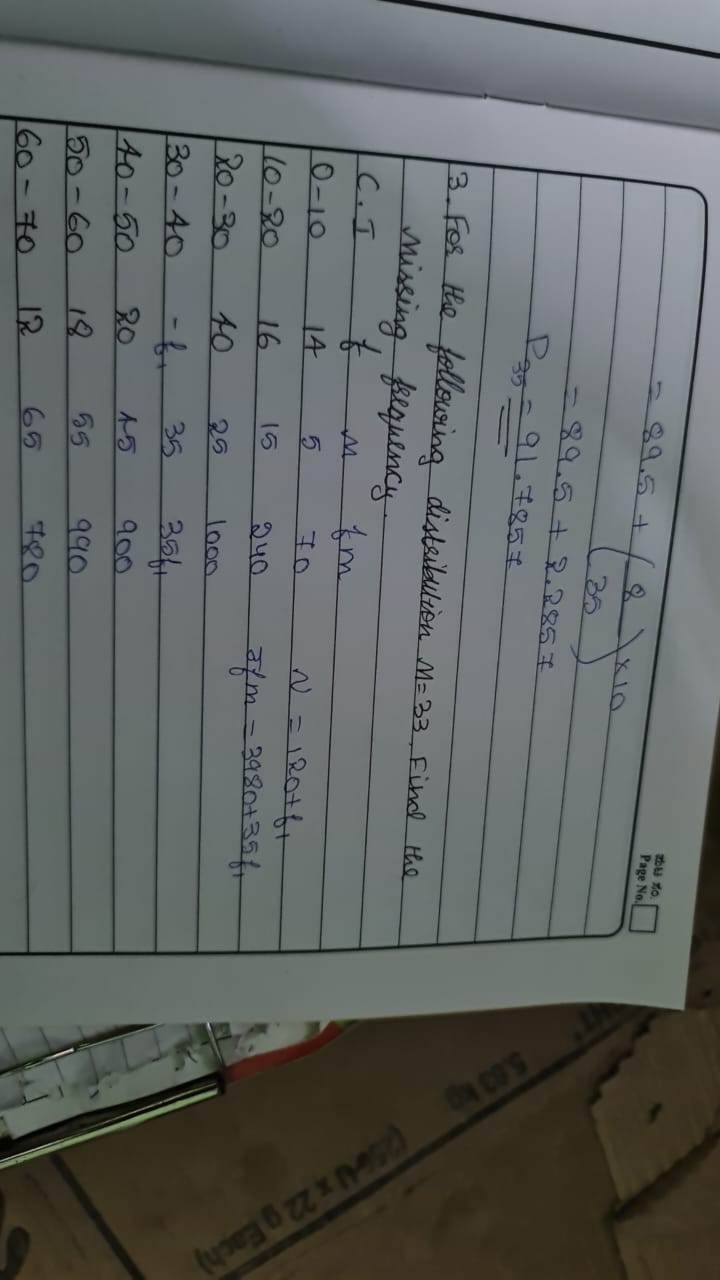 ಪುಟ ಸಂ.
Page No.
= 89.5 + (8/35) × 10
= 89.5 + 2.2857
P35 = 91.7857
3. For the following distribution M=33. Find the
missing frequency.
C.I f M fm
0-10 14 5 70 N = 120+f1
10-20 16 15 240 Σfm = 3980+35f1
20-30 40 25 1000
30-40 - f1 35 35f1
40-50 20 45 900
50-60 18 55 990
60-70 12 65 780
5.63 kg
(256 U x 22 g Each)